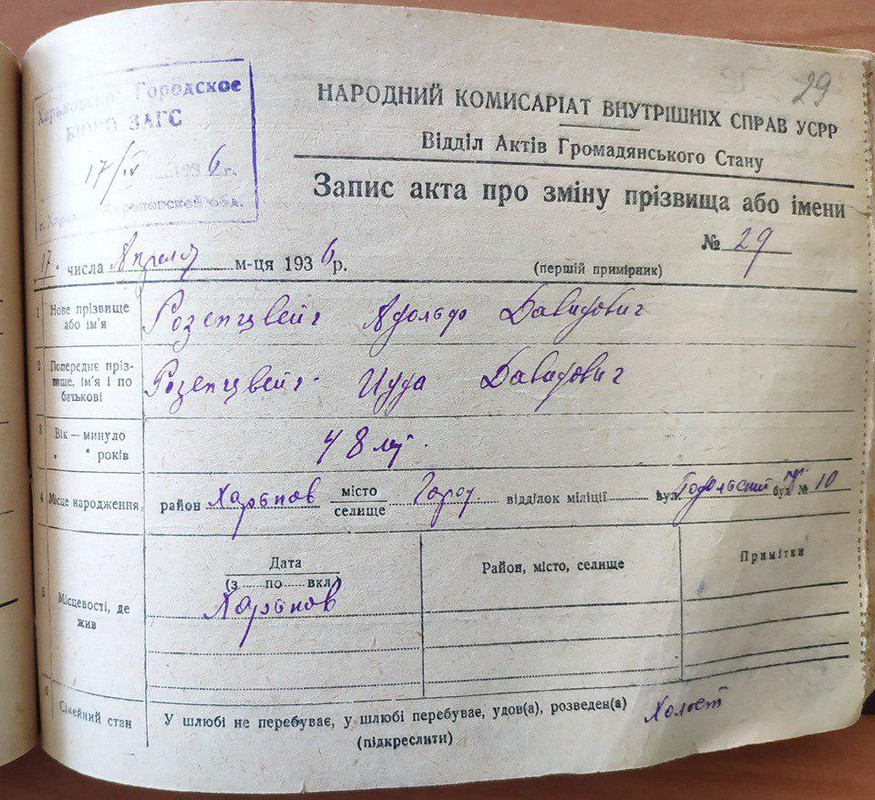 29
Харьковское Городское
БЮРО ЗАГС
17/IV 1936 г.
г. Харьков Харьковской обл.
НАРОДНИЙ КОМИСАРІАТ ВНУТРІШНІХ СПРАВ УСРР
Відділ Актів Громадянського Стану
Запис акта про зміну прізвища або імени
№ 29
17 числа Апреля м-ця 1936 р.
(першій примірник)
1 Нове прізвище або ім'я Розенцвейг Адольф Давидович
2 Попереднє пріз-
вище, ім'я і по
батькові Розенцвейг Иуда Давидович
3 Вік — минуло
„ " років 48 лет.
4 Місце народження район Харьков місто
селище Город. відділок міліції вул. Подольский пер. буд. № 10
5 Місцевості, де
жив
Дата
(з ...... по ...... вкл.)
Район, місто, селище
Примітки
Харьков
6 Сімейний стан У шлюбі не перебуває, у шлюбі перебуває, удов(а), розведен(а) Холост
(підкреслити)